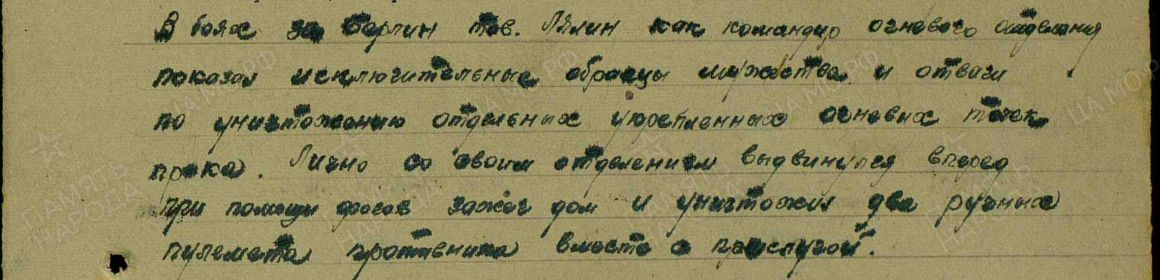 В боях за Берлин тов. Лялин как командир огневого отделения
показал исключительные образцы мужества и отваги
по уничтожению отдельных укрепленных огневых точек
пр-ка. Лично со своим отделением выдвинулся вперед
при помощи фосов зажег дом и уничтожил два ручных
пулемета противника вместе с прислугой.